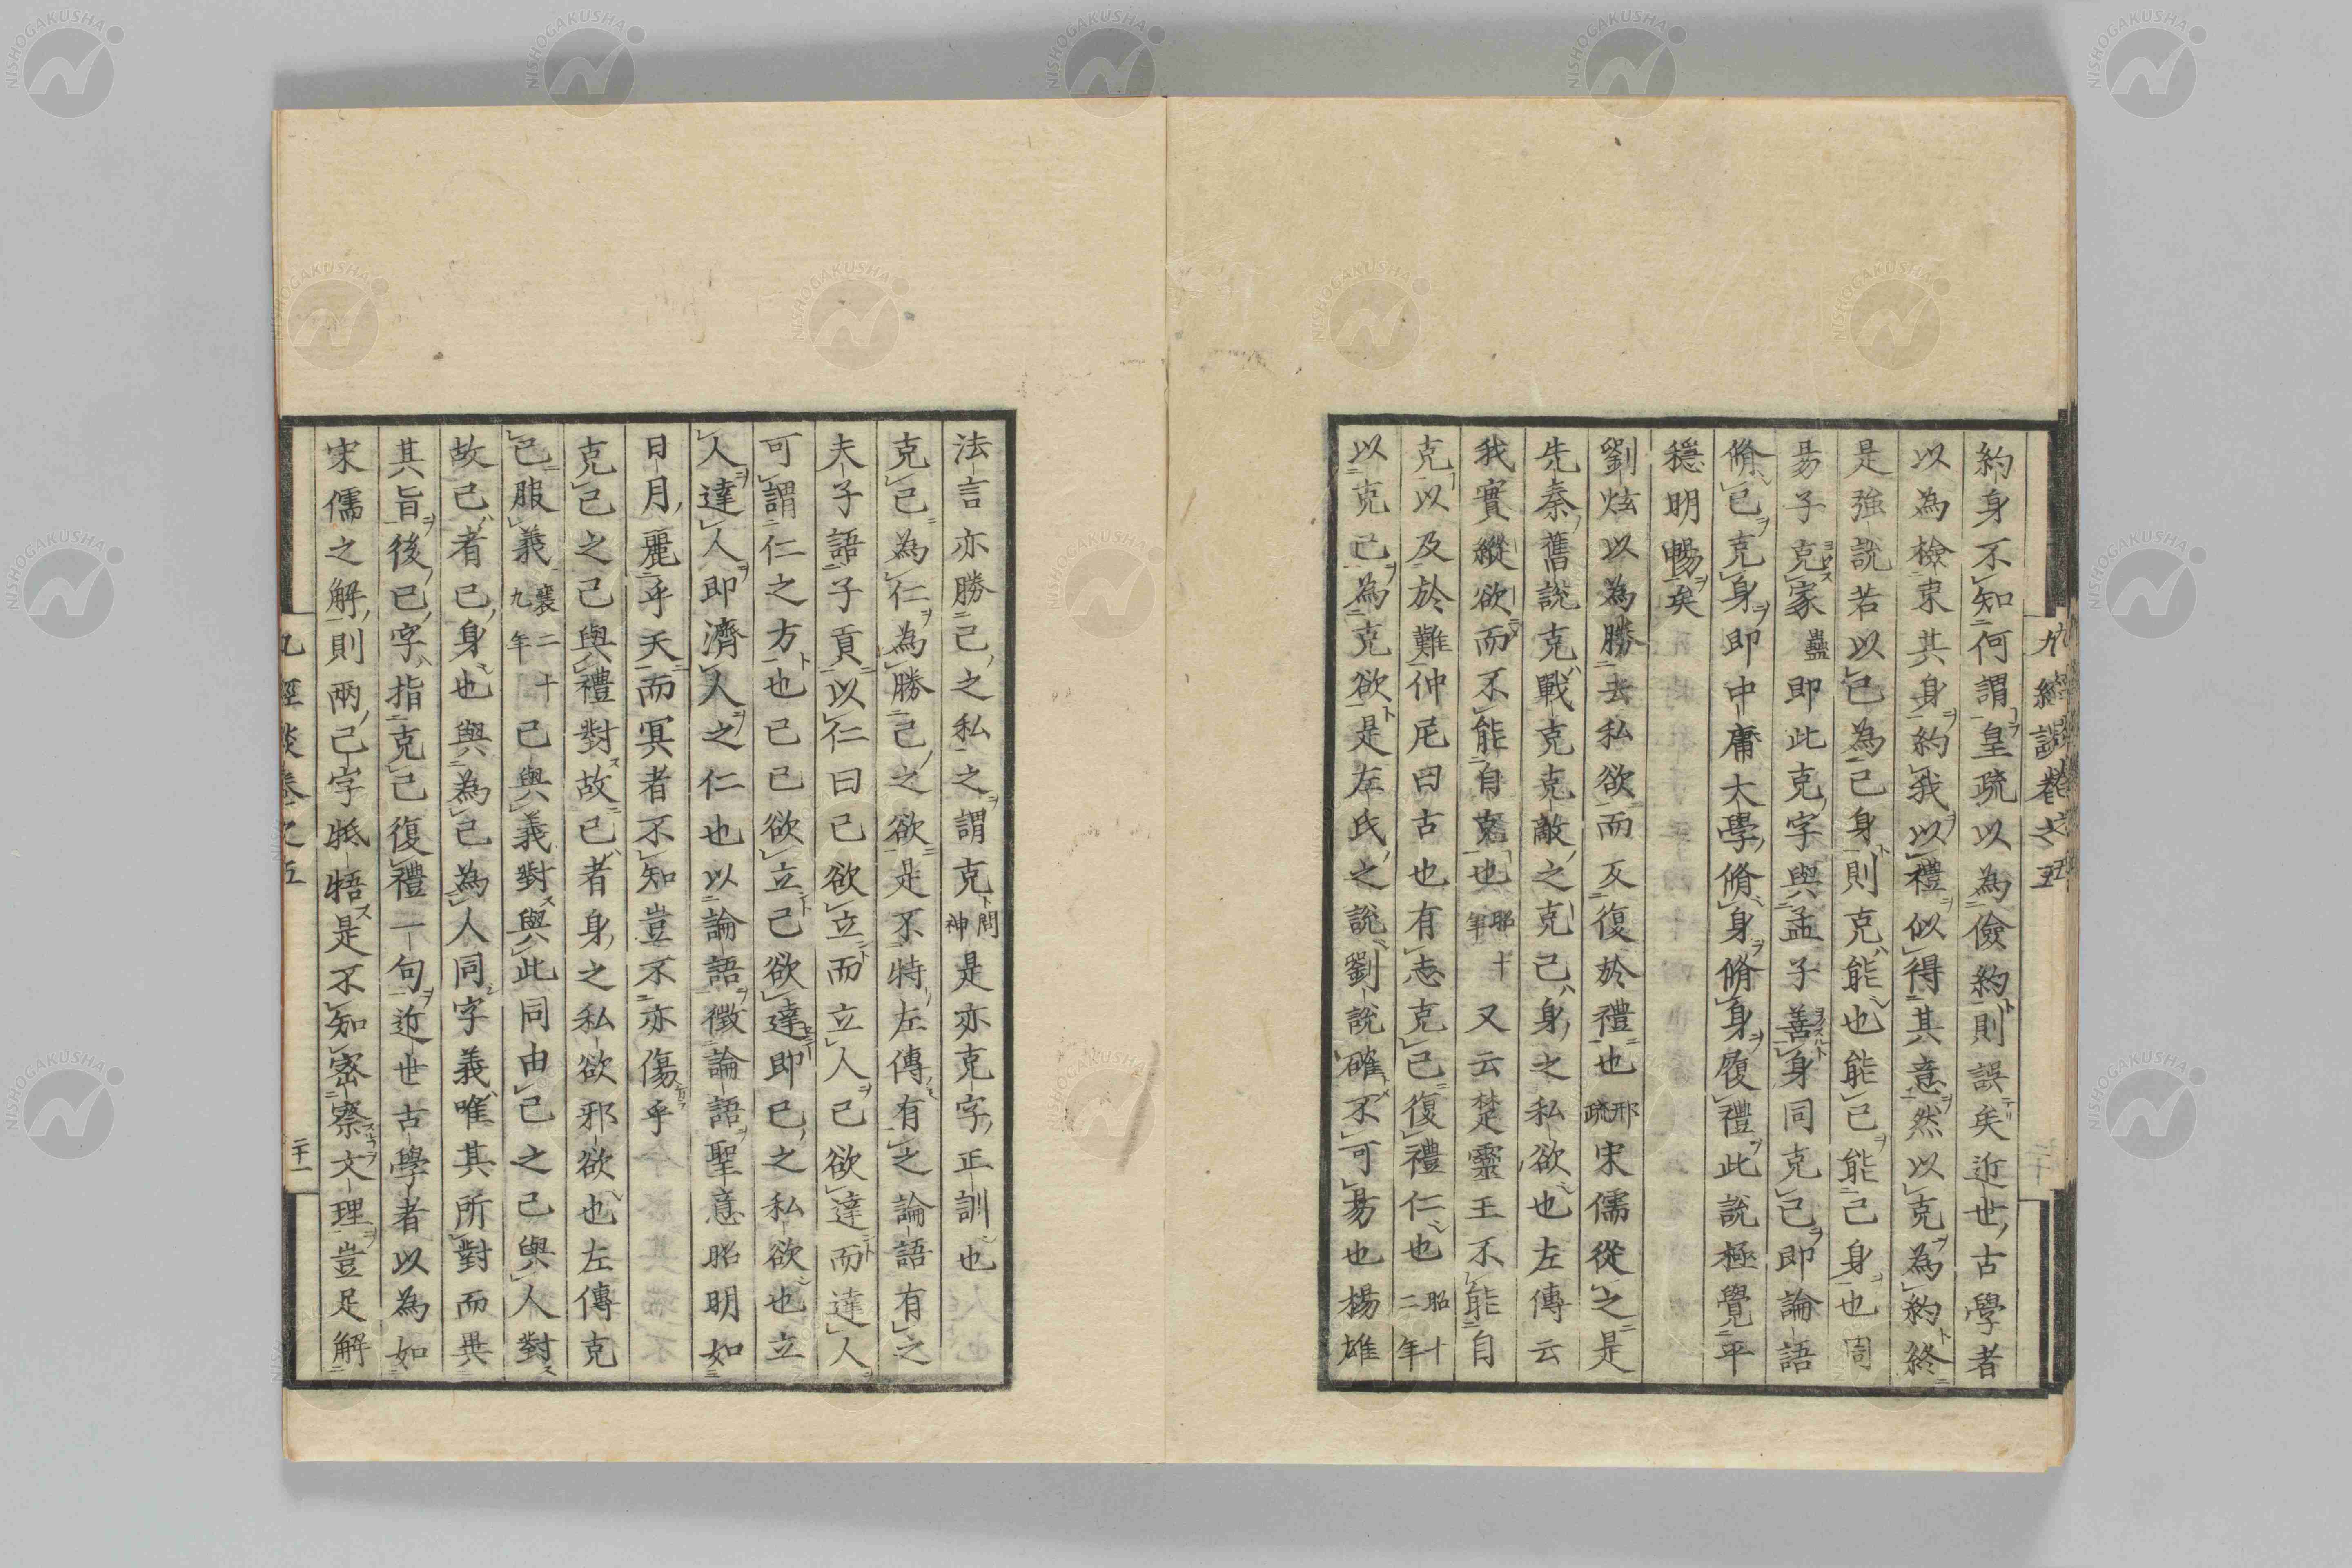 九經談卷之五
約身不知何謂皇疏以為儉約則誤矣近世古學者
以為檢束其身約我以禮似得其意然以克為約終
是強說若以己為己身則克能也能己能己身也周
易子克家蠱即此克字與孟子善身同克己即論語
脩己克身即中庸大學脩身脩身復禮此說極覺平
穩明暢矣
劉炫以為勝去私欲而反復於禮也邢疏宋儒從之是
先秦舊說克戰克克敵之克己身之私欲也左傳云
我實縱欲而不能自克也昭十年又云楚靈王不能自
克以及於難仲尼曰古也有志克己復禮仁也昭十二年
以克己為克欲是左氏之說劉說確不可易也楊雄
法言亦勝己之私之謂克問神是亦克字正訓也
克己為仁為勝己之欲是不特左傳有之論語有之
夫子語子貢以仁曰己欲立而立人己欲達而達人
可謂仁之方也已己欲立己欲達即己之私欲也立
人達人即濟人之仁也以論語徵論語聖意昭明如
日月麗乎天而冥者不知豈不亦傷乎
克己之己與禮對故己者身之私欲邪欲也左傳克
己服義襄二十九年己與義對與此同由己之己與人對
故己者己身也與為己為人同字義唯其所對而異
其旨後己字指克己復禮一句近世古學者以為如
宋儒之解則兩己字牴牾是不知密察文理豈足解
九經談卷之五
二十一
NISHOGAKUSHA